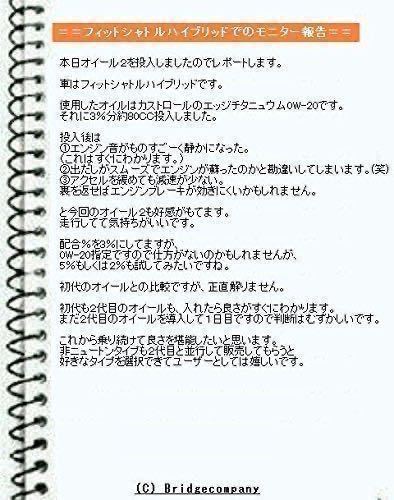 ＝＝フィットシャトルハイブリッドでのモニター報告＝＝
本日オイール２を投入しましたのでレポートします。
車はフィットシャトルハイブリッドです。
使用したオイルはカストロールのエッジチタニュウム0W-20です。
それに3％分約80CC投入しました。
投入後は
①エンジン音がものすごーく静かになった。
(これはすぐにわかります。)
②出だしがスムーズでエンジンが蘇ったのかと勘違いしてしまいます。(笑)
③アクセルを緩めても減速が少ない。
裏を返せばエンジンブレーキが効きにくいかもしれません。
と今回のオイール２も好感がもてます。
走行してて気持ちがいいです。
配合％を3％にしてますが、
0W-20指定ですので仕方がないのかもしれませんが、
5％もしくは2％も試してみたいですね。
初代のオイールとの比較ですが、正直解りません。
初代も２代目のオイールも、入れたら良さがすぐにわかります。
まだ２代目のオイールを導入して１日目ですので判断はむずかしいです。
これから乗り続けて良さを堪能したいと思います。
非ニュートンタイプも２代目と並行して販売してもらうと
好きなタイプを選択できてユーザーとしては嬉しいです。
(C) Bridgecompany